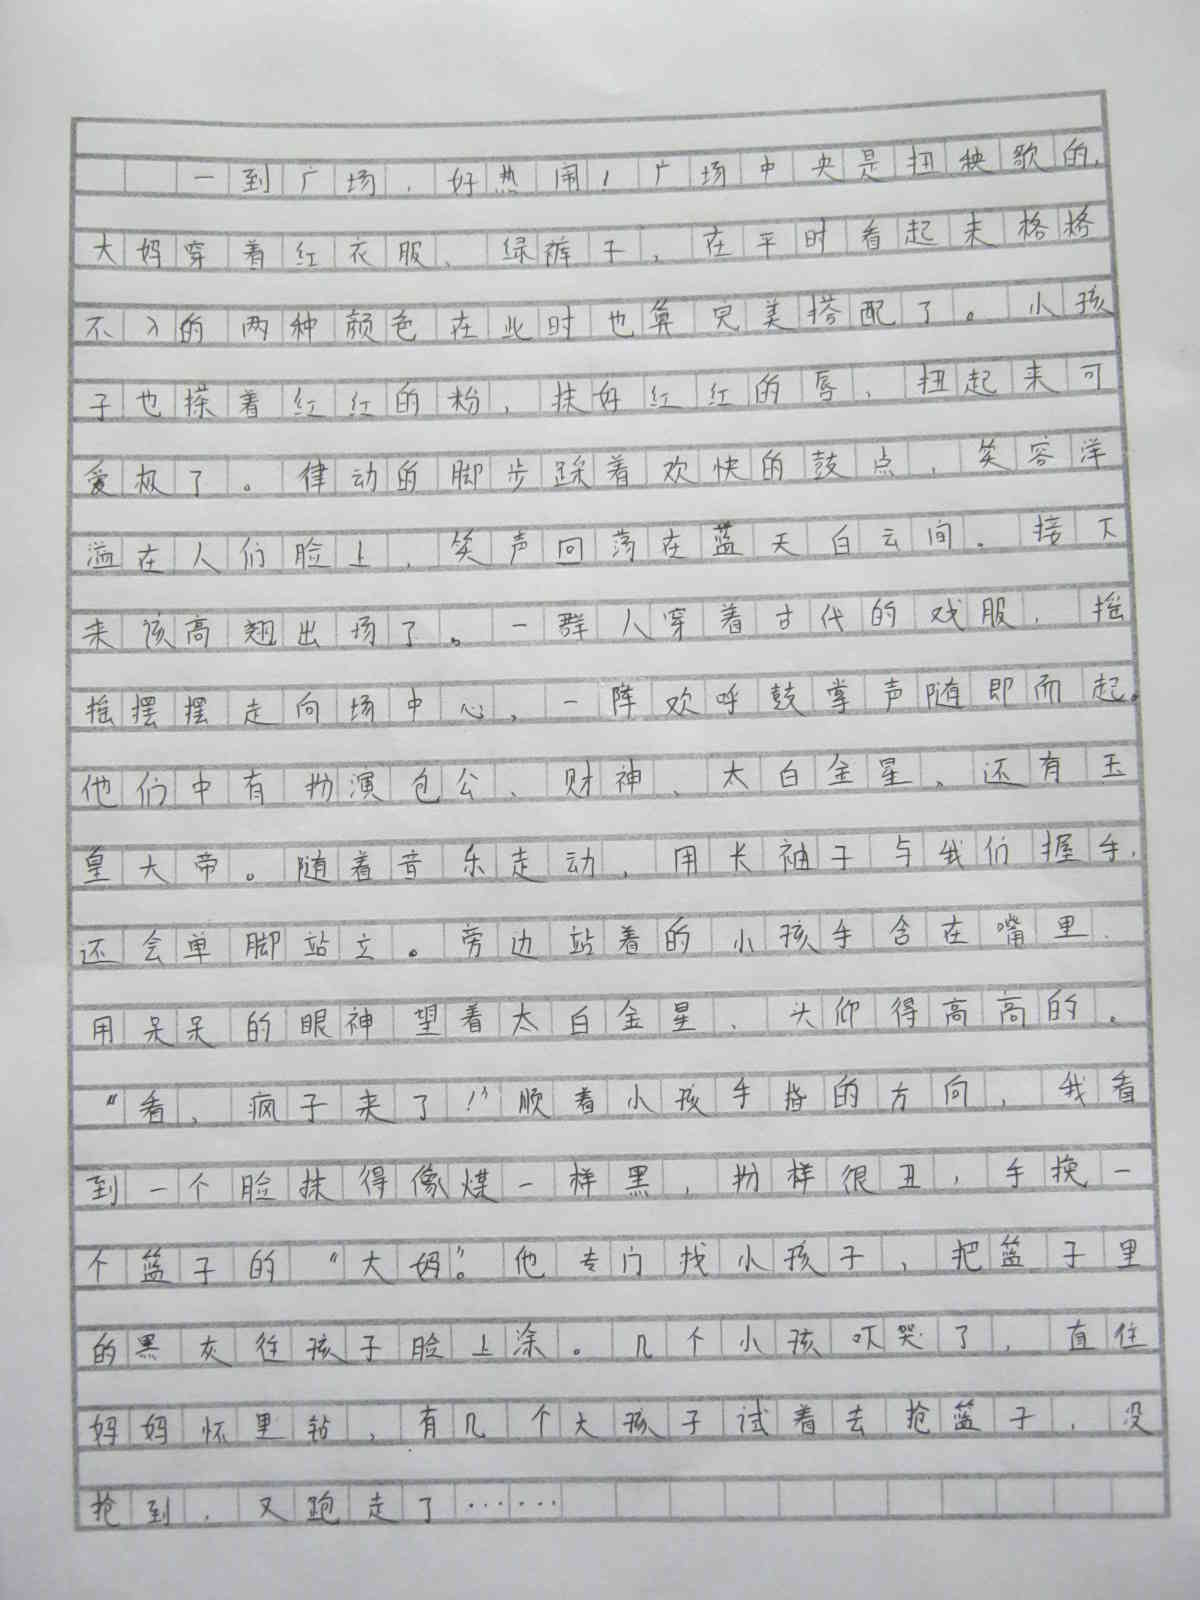 一到广场，好热闹！广场中央是扭秧歌的，
大妈穿着红衣服、绿裤子，在平时看起来格格
不入的两种颜色在此时也算完美搭配了。小孩
子也搽着红红的粉，抹好红红的唇，扭起来可
爱极了。律动的脚步踩着欢快的鼓点，笑容洋
溢在人们脸上，笑声回荡在蓝天白云间。接下
来该高翘出场了。一群人穿着古代的戏服，摇
摇摆摆走向场中心，一阵欢呼鼓掌声随即而起。
他们中有扮演包公、财神、太白金星、还有玉
皇大帝。随着音乐走动，用长袖子与我们握手，
还会单脚站立。旁边站着的小孩手含在嘴里，
用呆呆的眼神望着太白金星、头仰得高高的。
“看，疯子来了！”顺着小孩手指的方向，我看
到一个脸抹得像煤一样黑，扮样很丑，手挽一
个篮子的“大妈”。他专门找小孩子，把篮子里
的黑灰往孩子脸上涂。几个小孩吓哭了，直往
妈妈怀里钻，有几个大孩子试着去抢篮子，没
抢到，又跑走了……